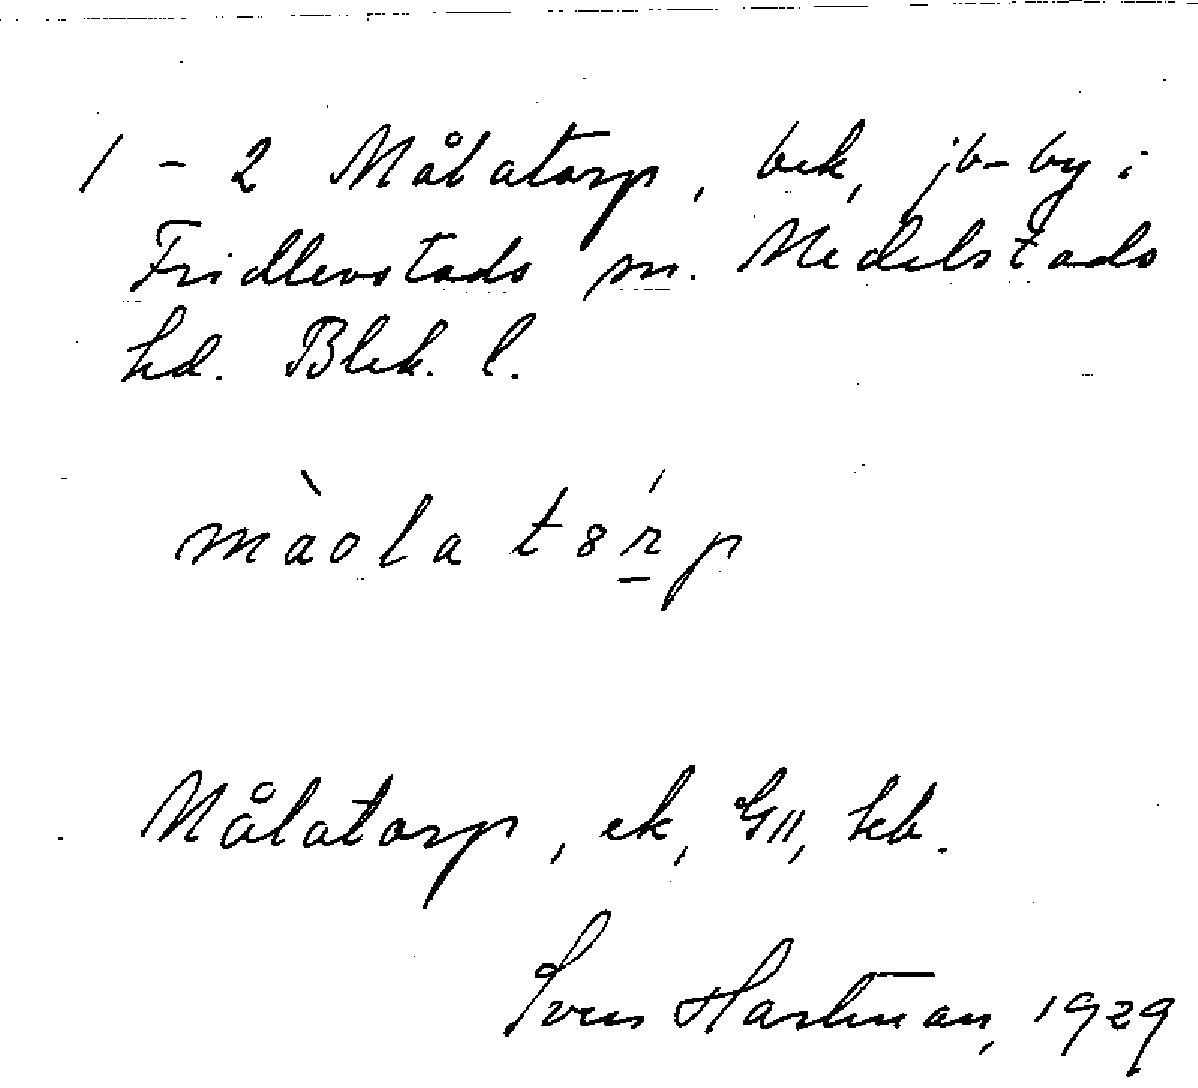 1 - 2 Målatorp, bek, jb-by i
Fridlevstads sn. Medelstads
hd. Blek. l.
màola tórp
Målatorp, ek, GII, kb.
Sven Hartman, 1929